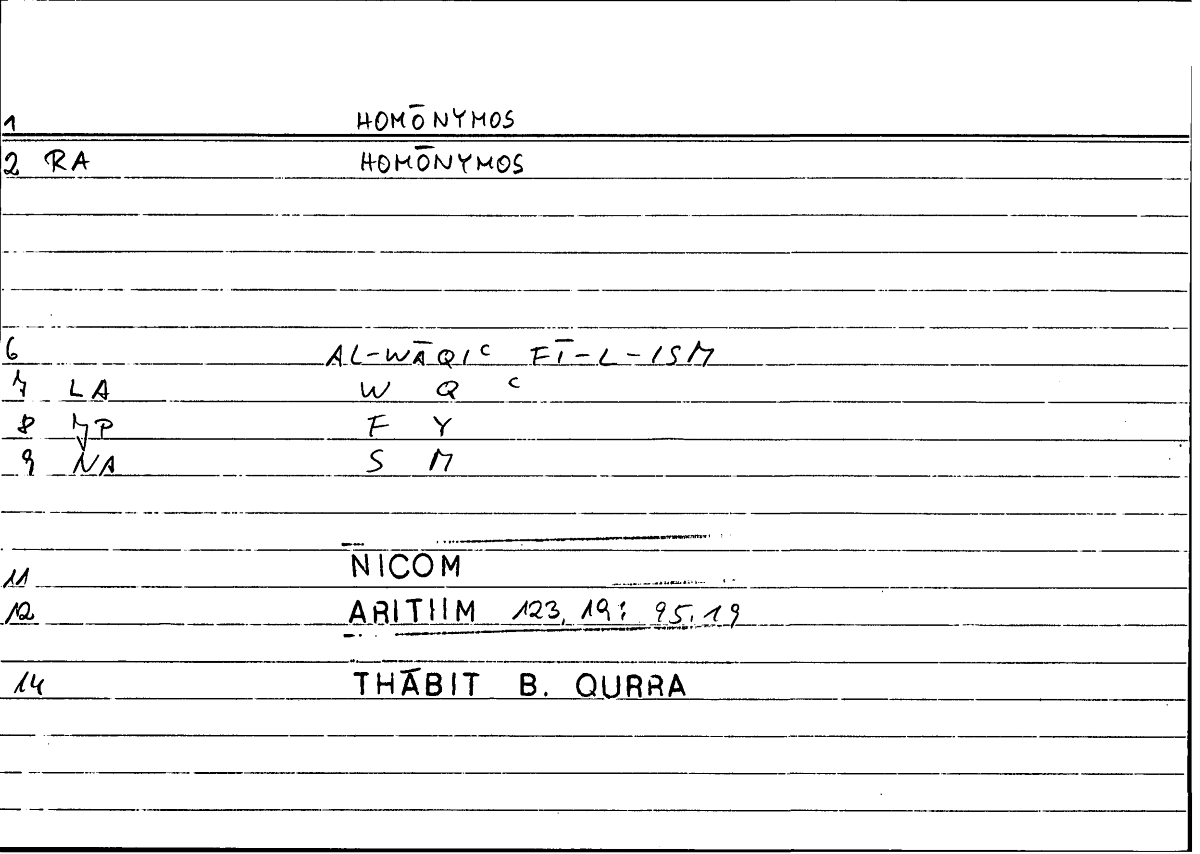 1 HOMŌNYMOS
2 RA HOMŌNYMOS
6 AL-WĀQIᶜ FĪ-L-ISM
7 LA W Q ᶜ
8 P F Y
9 NA S M
11 NICOM
12 ARITIIM 123, 19; 95, 19
14 THĀBIT B. QURRA